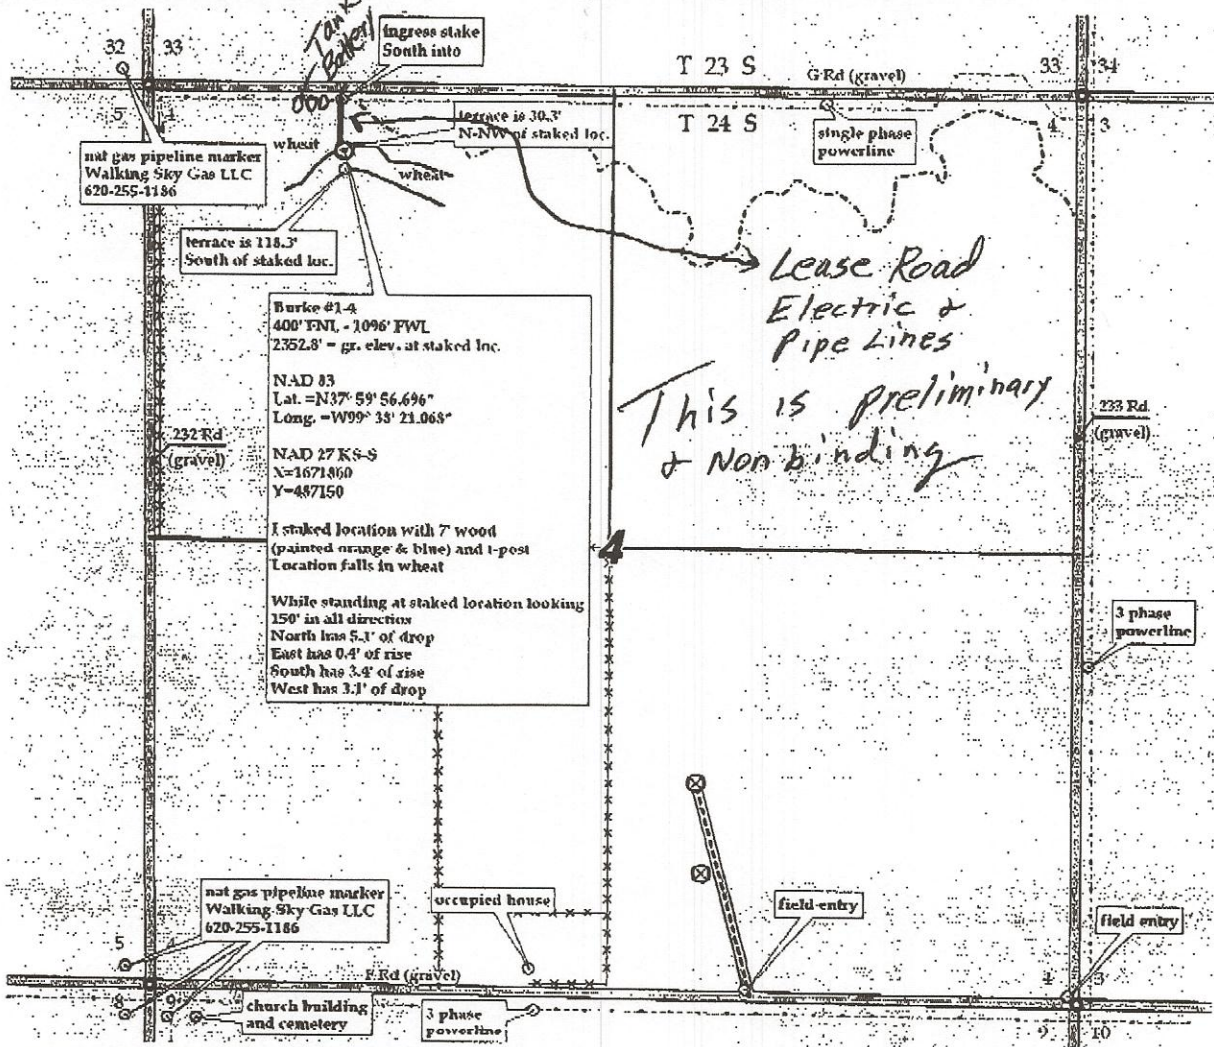 Tank
Battery
ingress stake
South into
32 33
T 23 S
G Rd (gravel)
33 34
5 4
T 24 S
4 3
terrace is 30.3'
N-NW of staked loc.
single phase
powerline
wheat
wheat
nat gas pipeline marker
Walking Sky Gas LLC
620-255-1186
terrace is 118.3'
South of staked loc.
Lease Road
Electric &
Pipe Lines
This is preliminary
& Non binding
Burke #1-4
400' FNL - 1096' FWL
2352.8' = gr. elev. at staked loc.
NAD 83
Lat. =N37° 59' 56.696"
Long. =W99° 38' 21.068"
NAD 27 KS-S
X=1671860
Y=487150
I staked location with 7' wood
(painted orange & blue) and t-post
Location falls in wheat
While standing at staked location looking
150' in all direction
North has 5.1' of drop
East has 0.4' of rise
South has 3.4' of rise
West has 3.1' of drop
232 Rd
(gravel)
233 Rd
(gravel)
4
3 phase
powerline
nat gas pipeline marker
Walking Sky Gas LLC
620-255-1186
occupied house
field entry
field entry
5 4
F Rd (gravel)
4 3
8 9
church building
and cemetery
3 phase
powerline
9 10